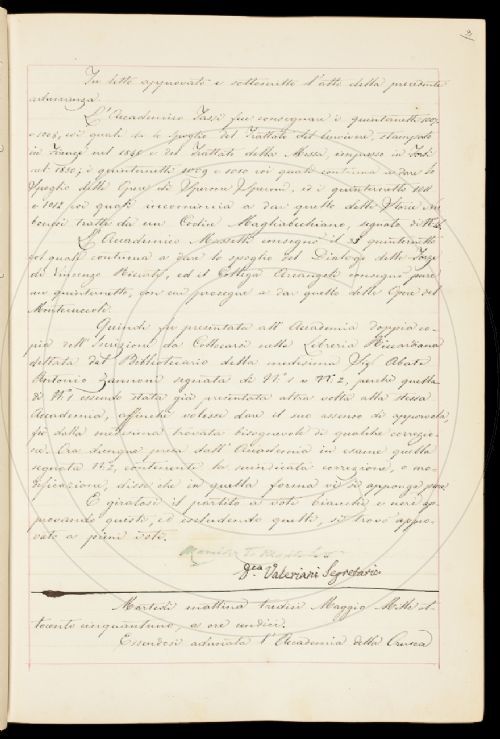 2
Fu letto approvato e sottoscritto l'atto della precedente
adunanza.
L'Accademico Tassi fece consegnare i quinternetti 1007
e 1008, coi quali dà lo spoglio del Trattato del ben vivere, stampato
in Firenze nel 1848 e del Trattato della Messa, impresso in Forlì
nel 1850; i quinternetti 1009 e 1010 coi quali continua a dare lo
spoglio delle Opere di Sperone Speroni, ed i quinternetti 1011
e 1012 coi quali incomincia a dar quello delle
tratte da un Codice Magliabechiano, segnato di
L'Accademico Masselli consegnò il quinternetto
col quale continua a dare lo spoglio del Dialogo delle Forze
di Vincenzo Riccati, ed il Collega Arcangeli consegnò pure
un quinternetto, con cui prosegue a dar quello delle Opere del
Montecuccoli.
Quindi fu presentata all'Accademia doppia co-
pia dell'Iscrizione da Collocarsi nella Libreria Riccardiana
dettata dal Bibliotecario della medesima Sig. Abate
Antonio Zannoni segnata di N.° 1 e N.° 2, perché quella
di N.° 1 essendo stata già presentata altra volta alla stessa
Accademia, affinché volesse dare il suo assenso di approvarla,
fu dalla medesima trovata bisognevole di qualche correzio-
ne. Ora dunque presa dall'Accademia in esame quella
segnata N.° 2, contenente la indicata correzione, o mo-
dificazione, disse che in quella forma vi si apponga pure.
E giratosi il partito a voti bianchi e neri ap-
provando questi, ed escludendo quelli, si trovò appro-
vato a pieni voti.
Gea. Valeriani Segretario
Martedì mattina tredici Maggio Mille ot-
tocento cinquantuno, a ore undici.
Essendosi adunata l'Accademia della Crusca